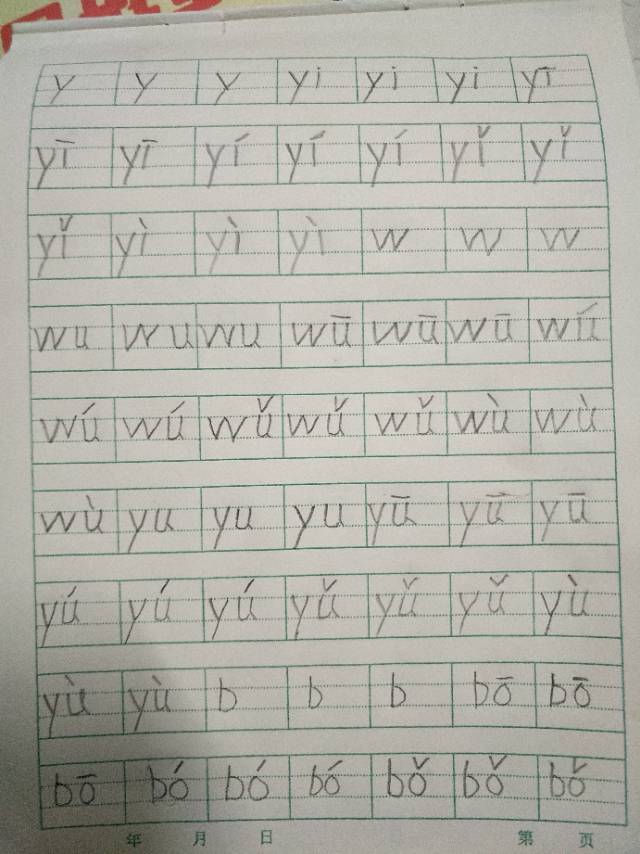 y y y yi yi yi yī
yī yī yí yí yí yǐ yǐ
yǐ yì yì yì w w w
wu wu wu wū wū wū wú
wú wú wǔ wǔ wǔ wù wù
wù yu yu yu yū yū yū
yú yú yú yǔ yǔ yǔ yù
yù yù b b b bō bō
bō bó bó bó bǒ bǒ bǒ
年 月 日 第 页